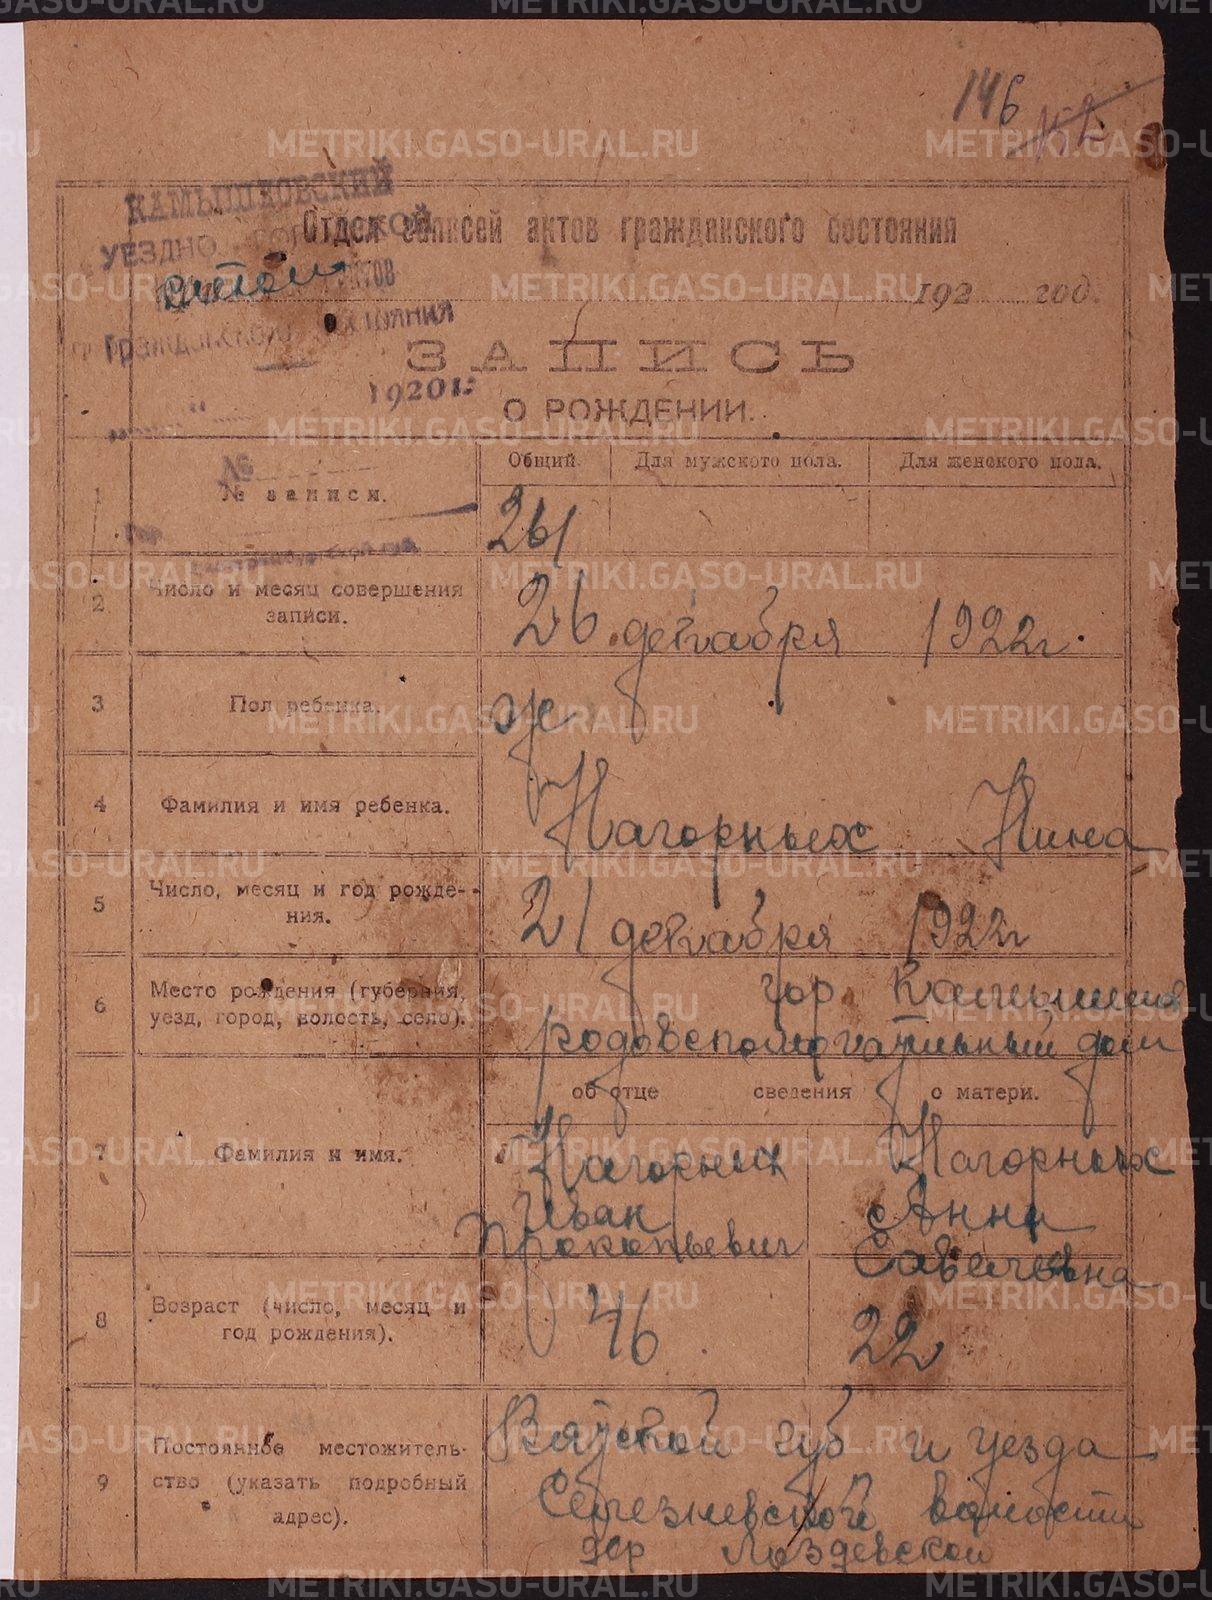 146 152
КАМЫШЛОВСКИЙ
Отдел записей актов гражданского состояния
УЕЗДНО ГОРОДСКОЙ
192 год.
Гражданского состояния
ЗАПИСЬ
1920 г.
О РОЖДЕНИИ.
Общий. Для мужского пола. Для женского пола.
№
1 № записи. 261
2 Число и месяц совершения записи. 26 декабря 1922 г.
3 Пол ребенка. ж
4 Фамилия и имя ребенка. Нагорных Нина
5 Число, месяц и год рожде-
ния. 21 декабря 1922 г
6 Место рождения (губерния, гор Камышлов
уезд, город, волость, село). родовспомогательный дом
об отце сведения о матери.
7 Фамилия и имя. Нагорных Нагорных
Иван Анна
Прокопьевич Савельевна
8 Возраст (число, месяц и
год рождения). 46 22
9 Постоянное местожитель-
ство (указать подробный
адрес).
Вятской губ и уезда
Селезневской волости
дер
METRIKI.GASO-URAL.RU